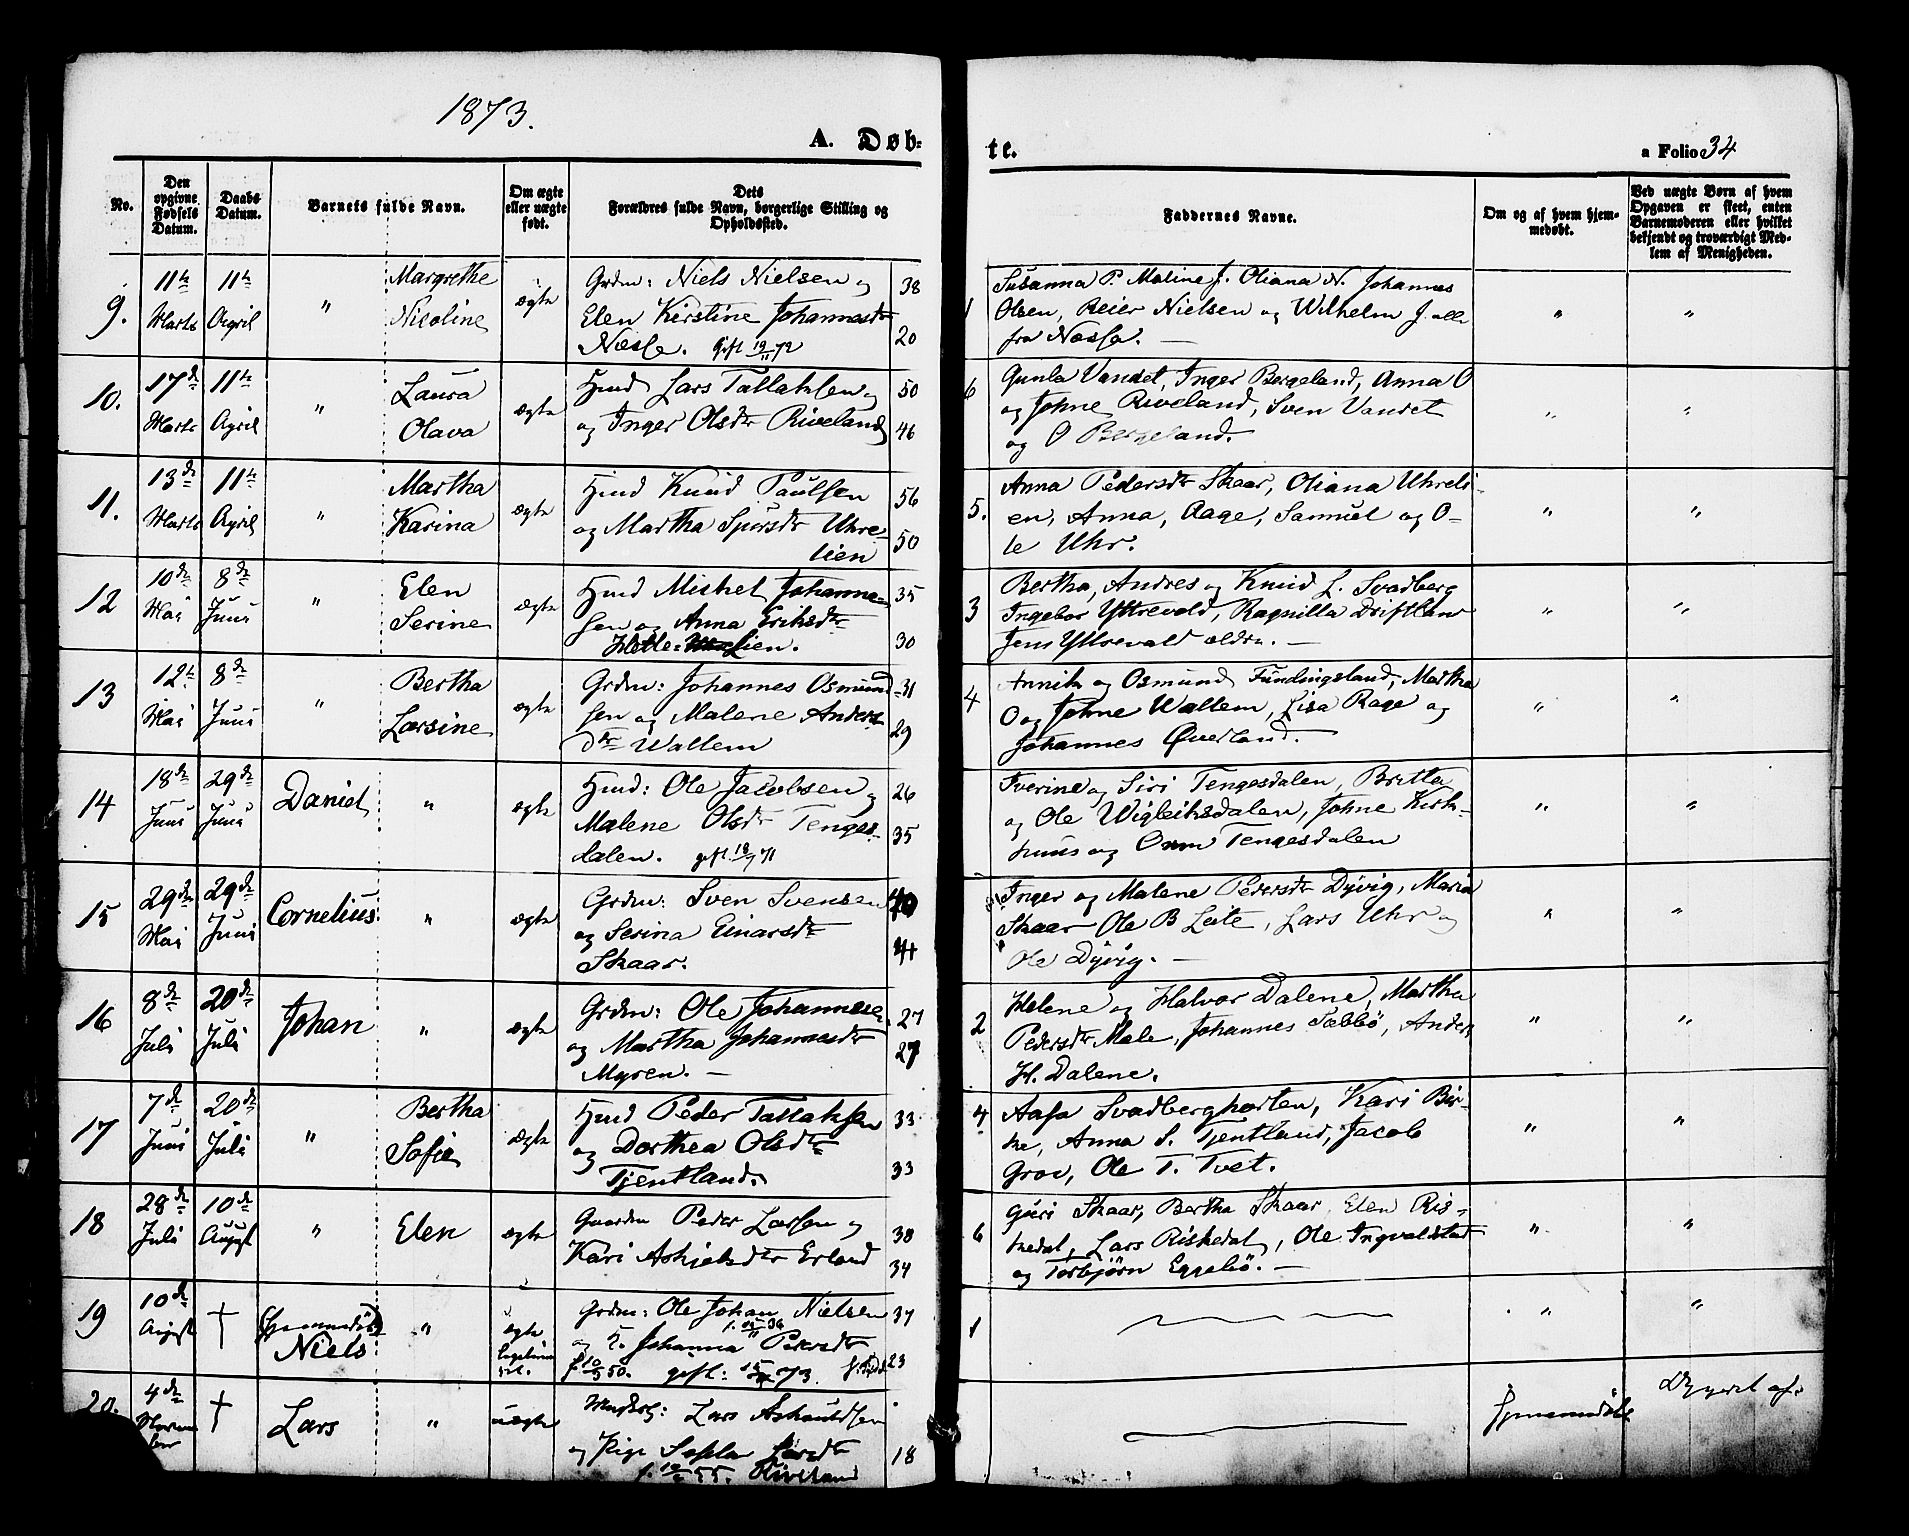 1873.
A. Døb-
te.
a Folio 34
No.
Den opgivne Fødsels Datum.
Daabs Datum.
Barnets fulde Navn.
Om ægte eller uægte født.
Dets Forældres fulde Navn, borgerlige Stilling og Opholdssted.
Faddernes Navne.
Om og af hvem hjemmedøbt.
Ved uægte Børn af hvem Opgaven er skeet, enten Barnemoderen eller hvilket bekjendt og troværdigt Medlem af Menigheden.
9. 11te Marts 11te April " Margrethe Nicoline ægte
Grdm: Niels Nielsen og 38
Elen Kirstine Johannesdtr 20
Næsse. Gift 19/11 72
1 Susanna P. Maline J. Oliana N. Johannes
Olsen, Reier Nielsen og Wilhelm J. alle
fra Næsse. —
" "
10. 17de Marts 11te April " Laura Olava ægte
Hmd Lars Tallaksen og 50
og Inger Olsdtr Riveland 46
6 Gunla Vandet, Inger Bergeland, Anna O
og Johne Riveland, Sven Vandet
og O Bergeland.
" "
11. 13de Marts 11te April " Martha Karina ægte
Hmd Knud Paulsen 56
og Martha Sjursdtr Uhre-
lien 50
5. Anna Pedersdtr Skaar, Oliana Uhreli-
en, Anna, Aage, Samuel og O-
le Uhr.
" "
12 10de Mai 8de Juni " Elen Serine ægte
Hmd Mickel Johanne- 35
sen og Anna Eriksdtr
Hetle-lien. 30
3 Bertha, Andres og Knud L. Svadberg
Ingebor Yttrevold, Ragnilla Driftland
Jens Yttrevold ældre. —
" "
13 12te Mai 8de Juni " Bertha Larsine ægte
Grdm: Johannes Osmund- 31
sen og Malene Anders-
dtr Wallem 29
4 Annik og Osmund Fundingsland, Martha
O og Johne Wallem, Lisa Rage og
Johannes Øverland.
" "
14 18de Juni 29de Juni Daniel " ægte
Hmd: Ole Jacobsen og 26
Malene Olsdtr Tenges- 35
dalen. gift 18/7 71
Iverine og Siri Tengesdalen, Britta
og Ole Wigleiksdalen, Johne Kirk-
huus og Orm Tengesdalen
" "
15 29de Mai 29de Juni Cornelius " ægte
Grdm: Sven Svensen 40
og Serina Einarsdtr
Skaar. 41
Inger og Malene Pedersdtr Dyvig, Maria
Skaar Ole B Leite, Lars Uhr og
Ole Dyvig. —
" "
16 8de Juli 20de Juli Johan " ægte
Grdm: Ole Johannesen 27
og Martha Johannesdtr 27
Myren. —
2 Helene og Halvor Dalene, Martha
Pedersdtr Male, Johannes Sæbbø, Anders
H. Dalene.
" "
17 7de Juni 20de Juli " Bertha Sofie ægte
Hmd Peder Tallaksen 33
og Dorthea Olsdtr
Tjentland. 33
4 Aasa Svadberghorten, Kari Bir-
ke, Anna S. Tjentland, Jacob
Grov, Ole T. Tvet.
" "
18 28de Juli 10de August " Elen ægte
Gaardm Peder Larsen og 38
Kari Askjelsdtr Erland 34
6 Guri Skaar, Bertha Skaar, Elen Ris-
kedal, Lars Riskedal, Ole Ingvaldstad
og Torbjørn Eggebø. —
" "
19 10de August † (Hjemmedøbt) Niels " ægte
Grdm: Ole Johan Nielsen 37
og H. Johanna Pedersdtr
f. 10/5 50. gift: 73. 23
1 " "
20. 4de † Lars " uægte
Ungk: Lars Askauldsen
og Pige Sofia Larsdtr 18
Riveland
Hjemmedøbt
Opgivet af